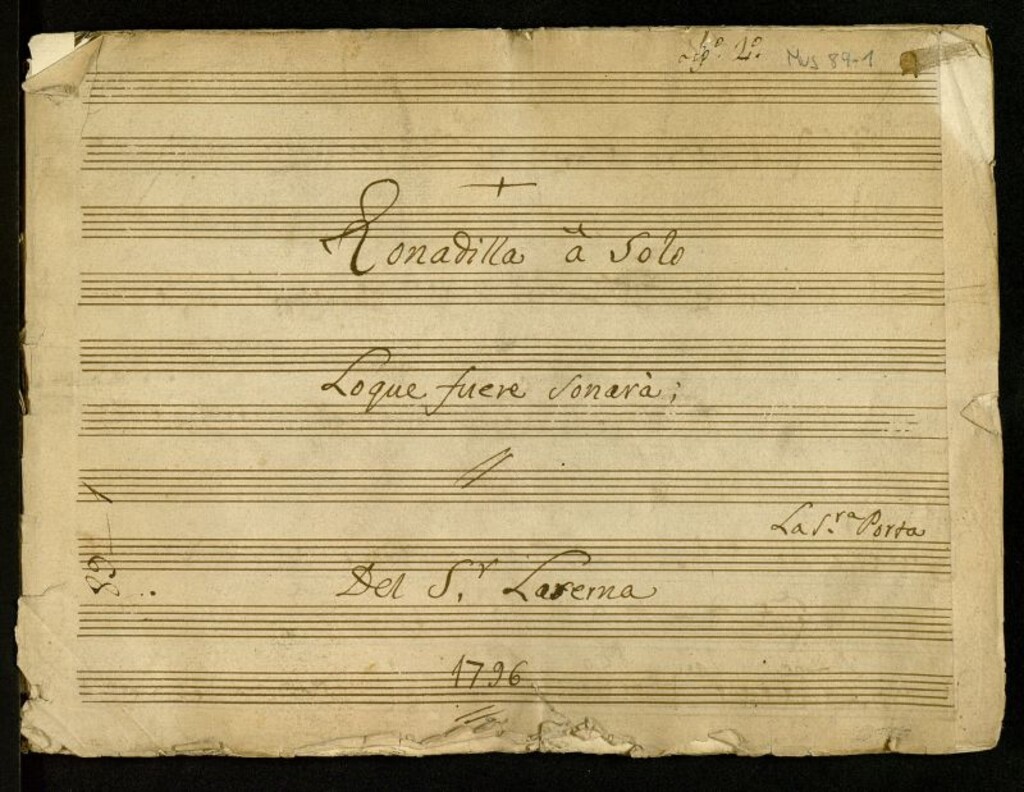 Lº. 2º. Mus 89-1
Tonadilla à Solo
Loque fuere Sonarà;
La S.ra Porta
89-1
Del S.r Laserna
1796